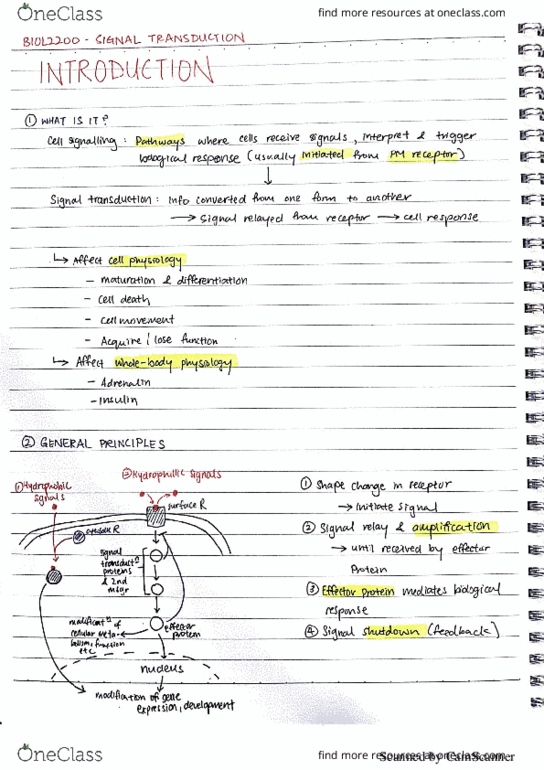 OneClass
find more resources at oneclass.com
BIOL2200 - SIGNAL TRANSDUCTION
INTRODUCTION
① WHAT IS IT?
Cell signalling : Pathways where cells receive signals, interpret & trigger
biological response (usually initiated from PM receptor)
↓
Signal transduction : Info converted from one form to another
→ Signal relayed from receptor → cell response
↳ Affect cell physiology
- maturation & differentiation
- cell death
- cell movement
- Acquire / lose function
↳ Affect whole-body physiology
- Adrenalin
- Insulin
② GENERAL PRINCIPLES
① Hydrophobic
signals
② Hydrophillic signals
surface R
R
signal
transductⁿ
proteins
& 2nd
msgr
modificatⁿ of
cellular meta-
bolism, function
etc
effector
protein
nucleus
modification of gene
expression, development
① Shape change in receptor
→ initiate signal
② Signal relay & amplification
→ until received by effector
protein
③ Effector protein mediates biological
response
④ Signal shutdown (feedback)
OneClass
find more resources at oneclass.com
Scanned by CamScanner